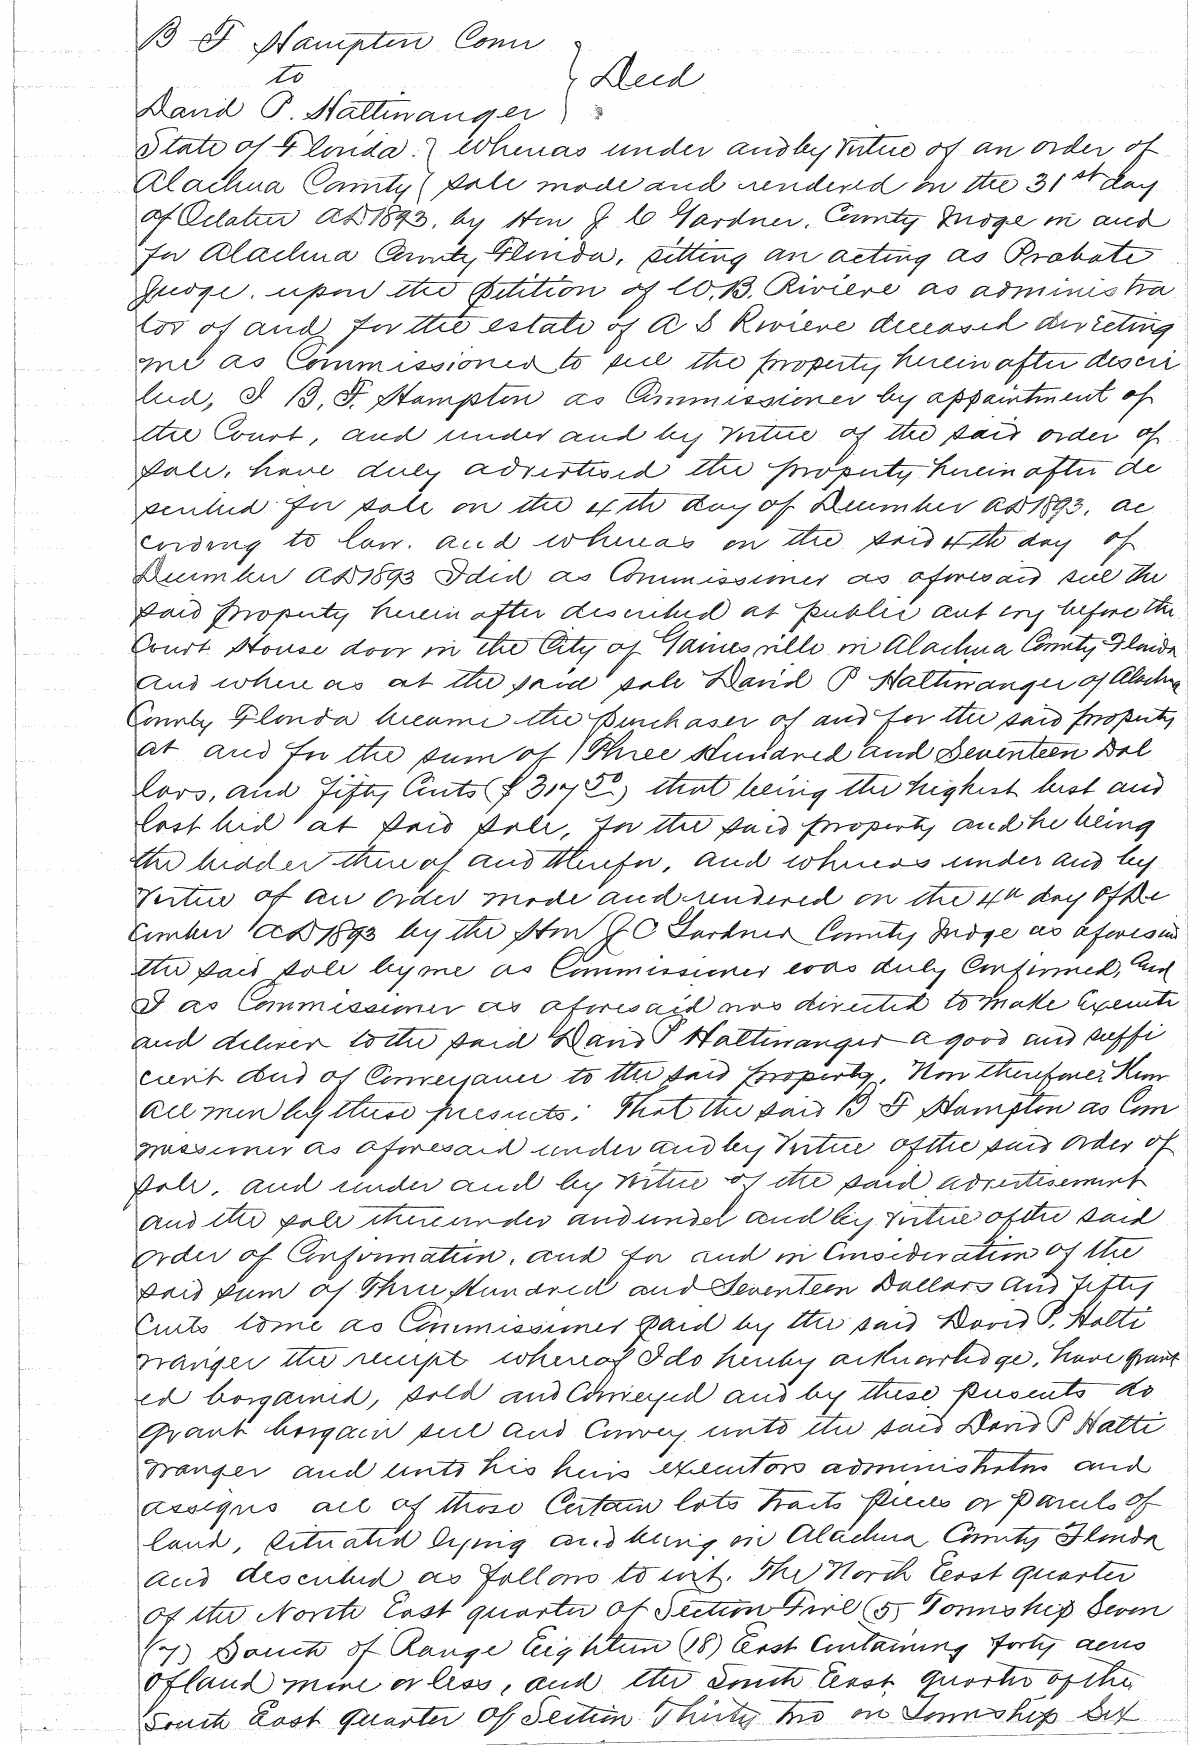 B F Hampton Comr
to } Deed
David P. Haltiwanger
State of Florida. } Whereas under and by virtue of an order of
Alachua County { sale made and rendered on the 31st day
of October AD 1893, by Hon J C Gardner, County Judge in and
for Alachua County Florida, sitting an acting as Probate
Judge. upon the petition of W. B. Riviere as administra
tor of and for the estate of A S Riviere deceased directing
me as Commissioner to sell the property herein after descri
bed, I B. F. Hampton as Commissioner by appointment of
the Court, and under and by virtue of the said order of
sale, have duly advertised the property herein after de
scribed for sale on the 4th day of December AD 1893, ac
cording to law. and whereas on the said 4th day of
December AD 1893 I did as Commissioner as aforesaid sell the
said property herein after described at public out cry before the
Court House door in the City of Gainesville in Alachua County Florida
and where as at the said sale David P Haltiwanger of Alachua
County Florida became the purchaser of and for the said property
at and for the sum of Three Hundred and Seventeen Dol
lars, and fifty Cents ($317 50) that being the highest best and
last bid at said sale, for the said property and he being
the bidder there of and therefor, and whereas under and by
virtue of an order made and rendered on the 4th day of De
cember AD 1893 by the Hon J C Gardner County Judge as aforesaid
the said sale by me as Commissioner was duly Confirmed, and
I as Commissioner as aforesaid was directed to make Execute
and deliver to the said David P Haltiwanger a good and suffi
cient deed of Conveyance to the said property. Now therefore: Know
all men by these presents: That the said B F Hampton as Com
missioner as aforesaid under and by virtue of the said order of
sale, and under and by virtue of the said advertisement
and the sale thereunder and under and by virtue of the said
order of Confirmation, and for and in Consideration of the
said sum of Three Hundred and Seventeen Dollars and fifty
Cents to me as Commissioner paid by the said David P. Halti
wanger the receipt whereof I do hereby acknowledge, have grant
ed bargained, sold and Conveyed and by these presents do
grant bargain sell and Convey unto the said David P Halti
wanger and unto his heirs executors administrators and
assigns all of those Certain lots tracts pieces or parcels of
land, situated lying and being in Alachua County Florida
and described as follows to wit. The North East quarter
of the North East quarter of Section Five (5) Township Seven
(7) South of Range Eighteen (18) East Containing forty acres
of land more or less, and the South East quarter of the
South East quarter of Section Thirty two in Township Six